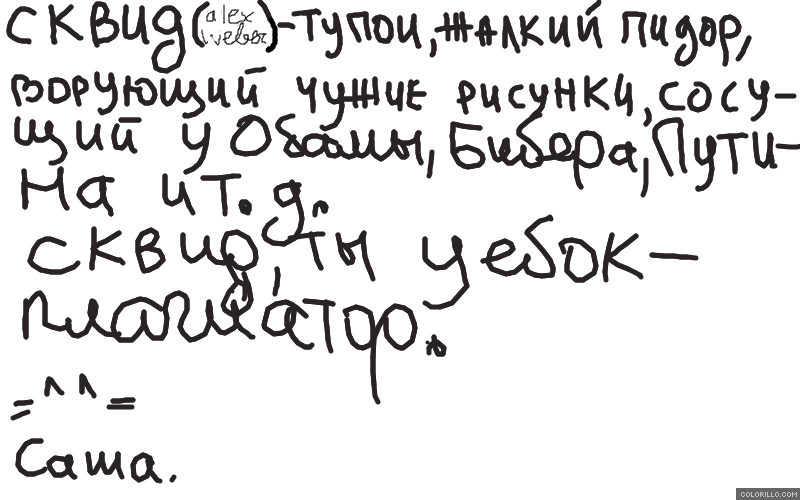 сквид (alex weber) - тупой, жалкий пидор,
ворующий чужие рисунки, сосу-
щий у Обамы, Бибера, Пути-
на и т. д.
сквид, ты уебок -
плагиатор.
= ^ ^ =
Саша.
COLORILLO.COM